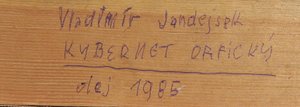 Vladimír Jandejsek
KYBERNET ORFICKÝ
olej 1985